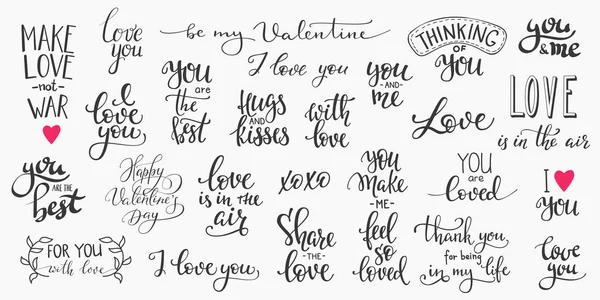 MAKE
LOVE
-not-
WAR
love
you
be my Valentine
THINKING
OF
you
you
& me
I love you
you
are
the
best
you
-AND-
me
I
love
you
Hugs
AND
kisses
with
love
Love
LOVE
is in the air
you
ARE THE
best
Happy
Valentine's
Day
love
is in the
air
xoxo
you
Make
-ME-
feel
so
loved
YOU
are
LOVED
I ♥
you
Share
-THE-
love
FOR YOU
with love
I love you
thank you
for being
in my life
love
you